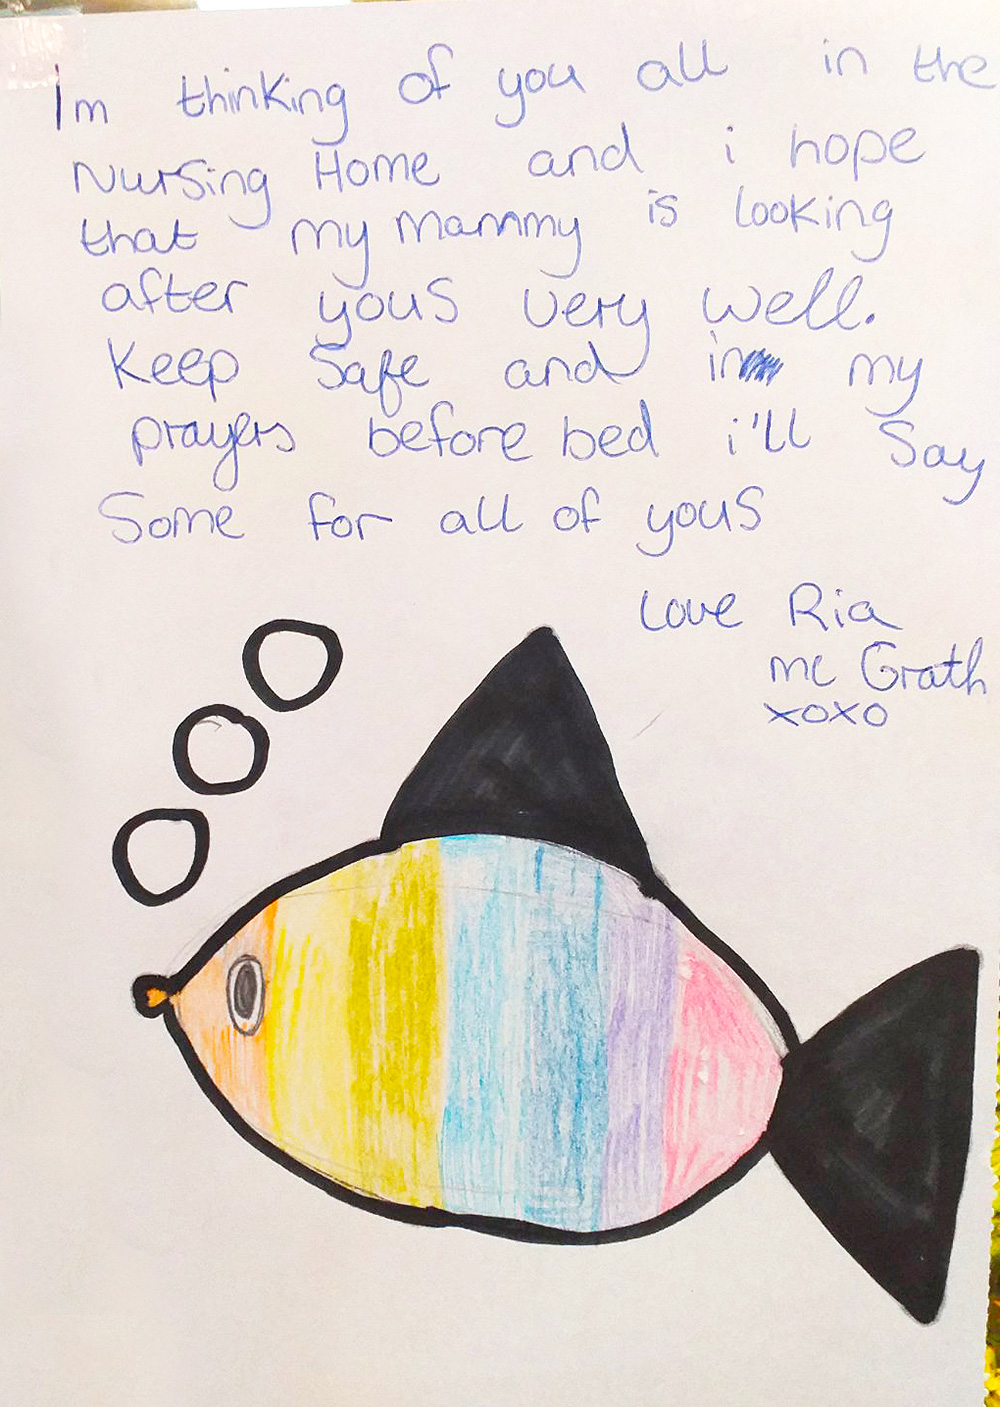 Im thinking of you all in the
Nursing Home and i hope
that my mammy is looking
after yous very well.
Keep Safe and in my
prayers before bed i'll Say
Some for all of yous
Love Ria
mc Grath
xoxo